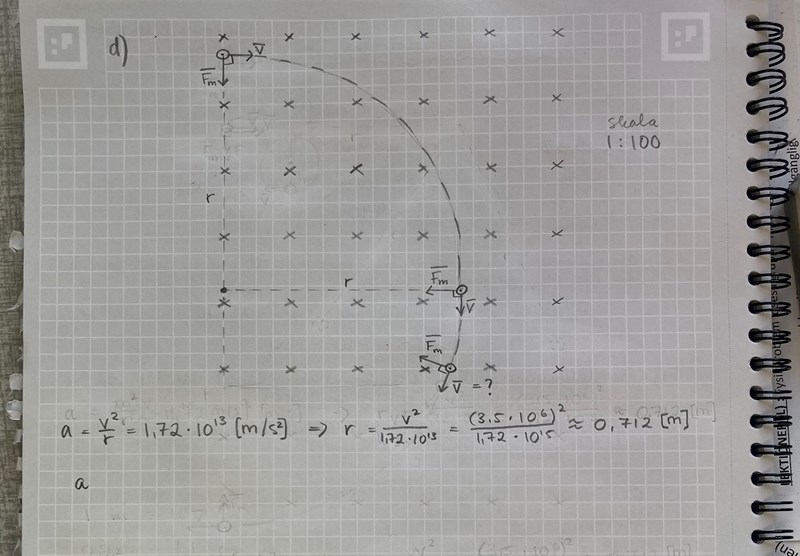 d)
v̅
F̅m
skala
1:100
r
r
F̅m
v̅
F̅m
v̅ = ?
a = v²/r = 1,72 · 10¹³ [m/s²] => r = v²/1,72 · 10¹³ = (3,5 · 10⁶)²/1,72 · 10¹³ ≈ 0,712 [m]
a